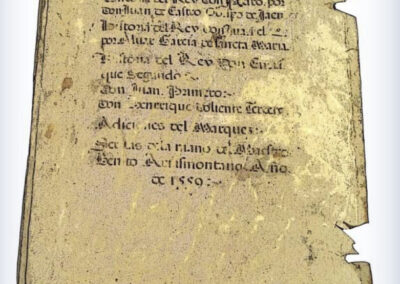 del Rey Don por
Don Juan de Castro Obispo de Jaen
Historia del Rey Don Juan el
por Alvar Garcia de Sancta Maria.
Historia del Rey Don Enri
que Segundo:
Don Juan Primero:
Don Henrique Doliente Tercero
Adiciones del Marques:
de la mano del Maestro
Benito Arismontano. Año
de 1559:~